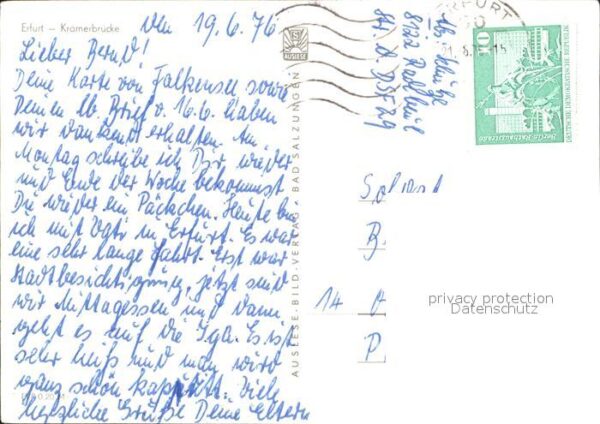 Erfurt — Krämerbrücke
den 19.6.76
Lieber Bernd!
Deine Karte von Falkensee sowie
Deinen lb. Brief v. 16.6. haben
wir dankend erhalten. Am
Montag schreibe ich Dir wieder
und Ende der Woche bekommst
Du wieder ein Päckchen. Heute bin
ich mit Vati in Erfurt. Es war
eine sehr lange Fahrt. Erst war
Stadtbesichtigung, jetzt sind
wir Mittagessen und dann
geht es auf die Iga. Es ist
sehr heiß und man wird
ganz schön kaputt. Viele
herzliche Grüße Deine Eltern
AUSLESE-BILD-VERLAG · BAD SALZUNGEN
AUSLESE
Abs. Schütze
8122 Radebeul
ERFURT
10
Soldat
B.
14 A
P
privacy protection
Datenschutz